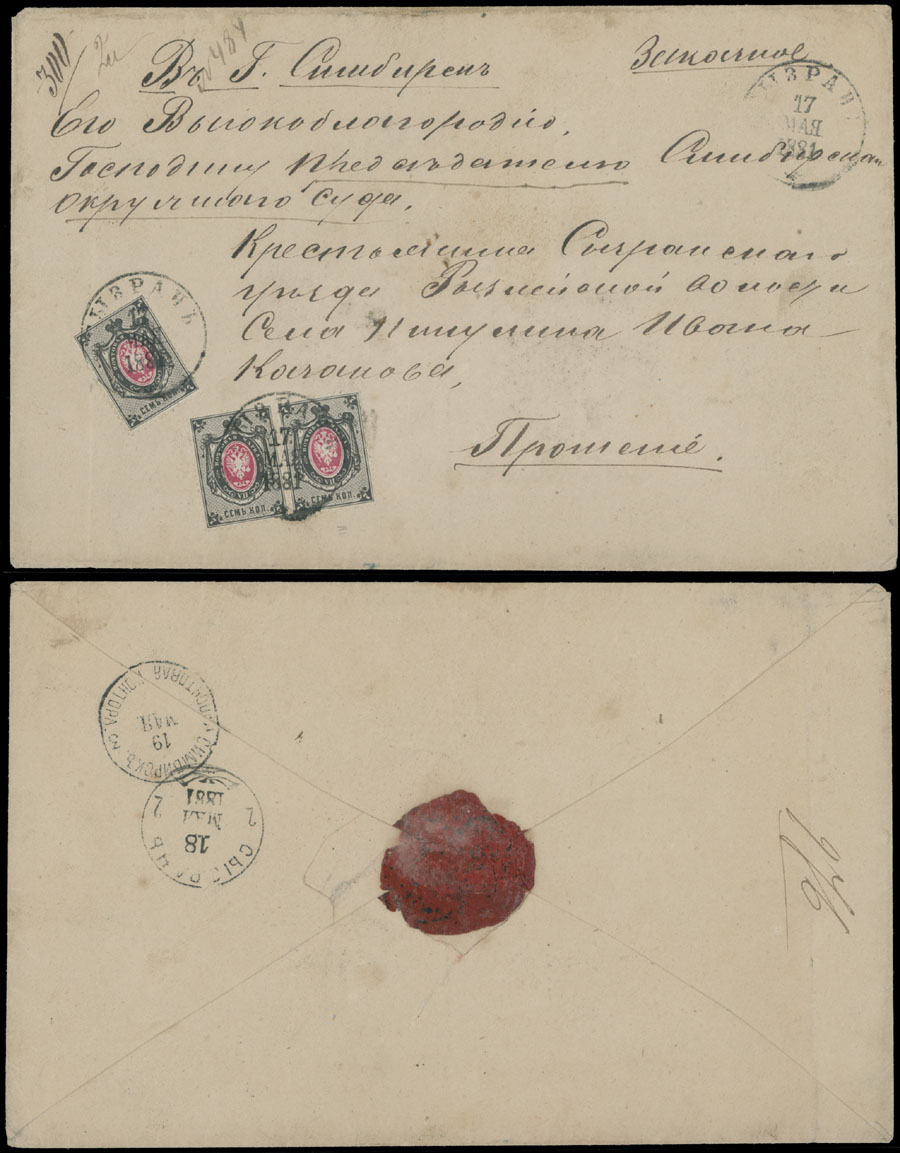 300
2й
№ 484
Въ Г. Симбирскъ
Заказное
Его Высокоблагородію,
Господину Председателю Симбирскаго
Окружнаго Суда,
Крестьянина Сызранскаго
уезда Рызлейской волости
Села Кашулина Ивана
Качанова,
Прошеніе.
СЫЗРАНЬ
17
МАЯ
1881
СЫЗРАНЬ
17
МАЯ
1881
СЕМЬ КОП.
СЫЗРАНЬ
17
МАЯ
1881
СЕМЬ КОП.
СЕМЬ КОП.
СИМБИРСКЪ ПОЧТОВАЯ КОНТОРА
19
МАЯ
1881
МАЯ
18
СЫЗРАНЬ
2
2